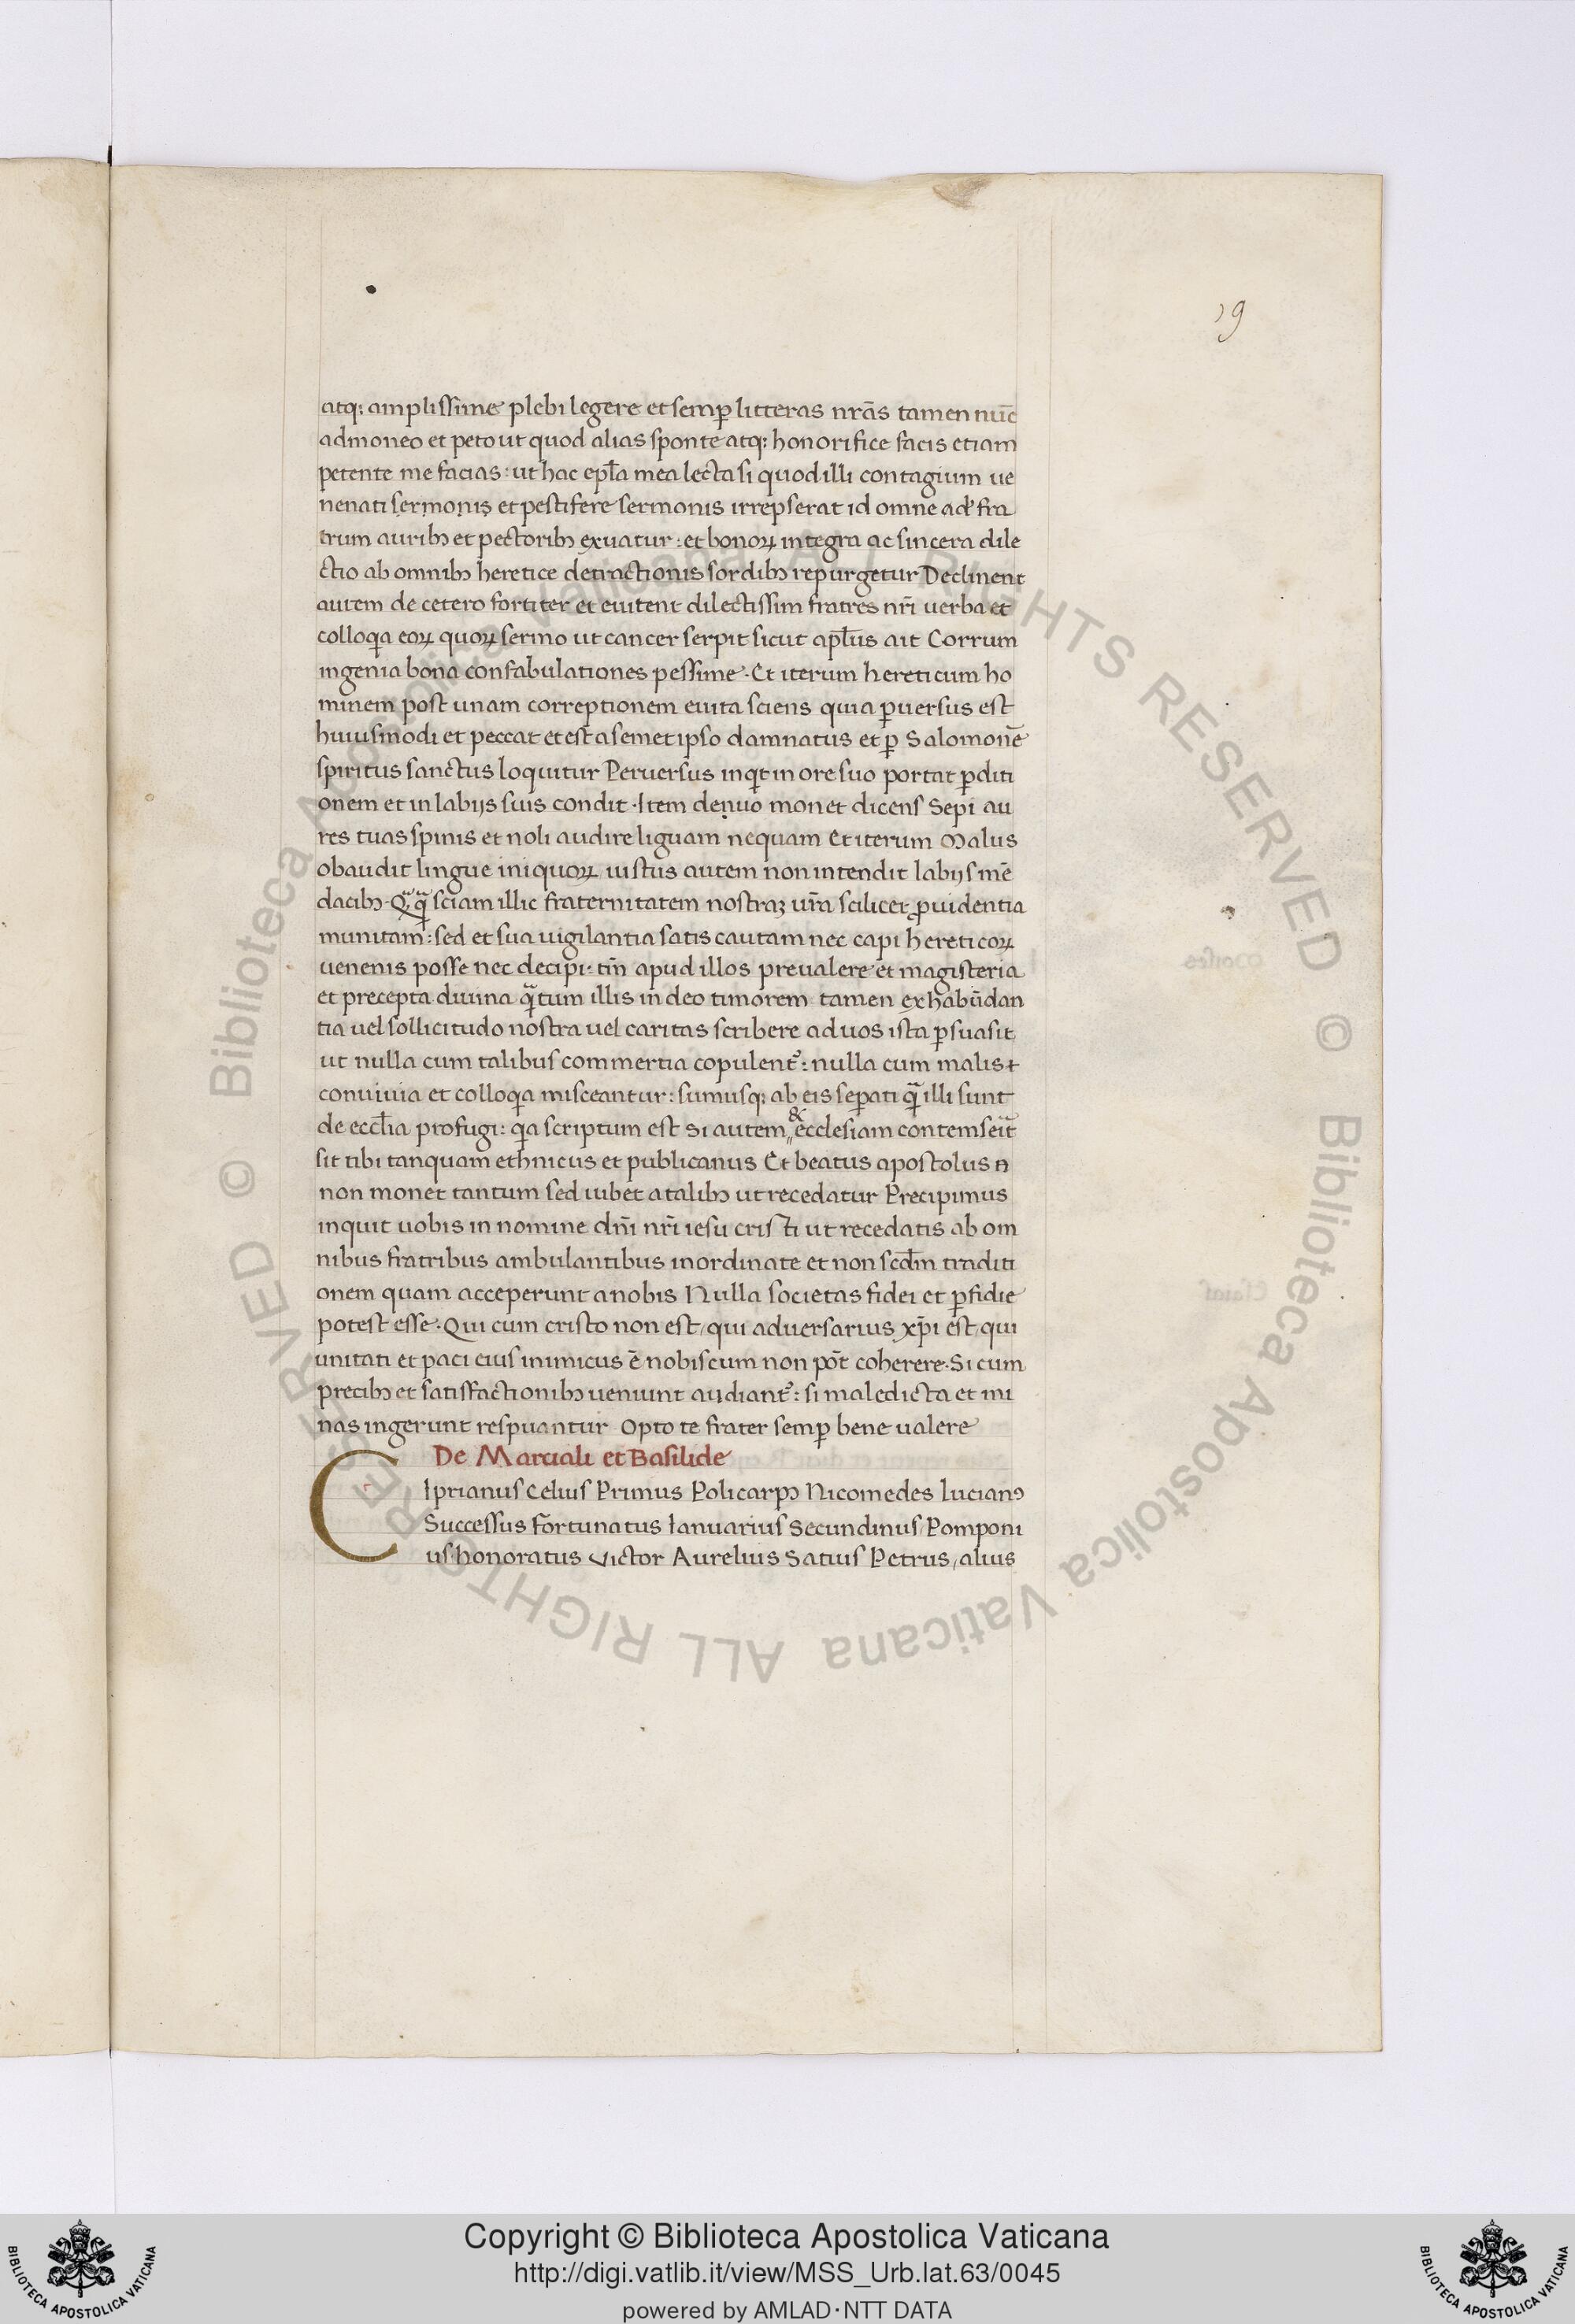 19
atq; amplissime plebi legere et semp̱ litteras nrãs tamen nũc
admoneo et peto ut quod alias sponte atq; honorifice facis etiam
petente me facias: ut hac epl̃a mea lecta si quod illi contagium ue
nenati sermonis et pestifere sermonis irrepserat id omne ad fra
trum auribꝫ et pectoribꝫ exuatur: et bonoꝝ integra ac sincera dile
ctio ab omnibꝫ heretice detractionis sordibꝫ repurgetur Declinent
autem de cetero fortiter et euitent dilectissim fratres nr̃i uerba et
colloqa eoꝝ quoꝝ sermo ut cancer serpit sicut apl̃us ait Corrum
ingenia bona confabulationes pessime. Et iterum hereticum ho
minem post unam correptionem euita sciens quia ꝑuersus est
huiusmodi et peccat et est a semet ipso damnatus et ꝑ Salomonẽ
spiritus sanctus loquitur Peruersus inqt in ore suo portat ꝑditi
onem et in labijs suis condit. Item denuo monet dicens Sepi au
res tuas spinis et noli audire liguam nequam Et iterum Malus
obaudit lingue iniquoꝝ iustus autem non intendit labijs mẽ
dacibꝫ. Qᵃqᵃ sciam illic fraternitatem nostraꝫ ur̃a scilicet ꝓuidentia
munitam: sed et sua uigilantia satis cautam nec capi hereticoꝝ
uenenis posse nec decipi: tm̃ apud illos preualere et magisteria
et precepta diuina qᵃtum illis in deo timorem tamen exhabũdan
tia uel sollicitudo nostra uel caritas scribere ad uos ista ꝑsuasit
ut nulla cum talibus commertia copulent᷑: nulla cum malis
conuiuia et colloqa misceantur: sumusq; ab eis seꝑati qᵃ illi sunt
de eccl̃ia profugi: qa scriptum est Si autem & ecclesiam contemseit
sit tibi tanquam ethnicus et publicanus Et beatus apostolus ñ
non monet tantum sed iubet a talibꝫ ut recedatur Precipimus
inquit uobis in nomine dñi nr̃i iesu cristi ut recedatis ab om
nibus fratribus ambulantibus inordinate et non scd̃m traditi
onem quam acceperunt a nobis Nulla societas fidei et ꝑfidie
potest esse. Qui cum cristo non est, qui aduersarius xp̃i est, qui
unitati et paci eius inimicus ẽ nobiscum non põt coherere. Si cum
precibꝫ et satisfactionibꝫ ueniunt audiant᷑: si maledicta et mi
nas ingerunt respuantur. Opto te frater semꝑ bene ualere
De Marciali et Basilide
Ciprianus Celius Primus Policarpꝰ Nicomedes lucianꝰ
Successus Fortunatus Ianuarius Secundinus Pomponi
us honoratus Victor Aurelius Satius Petrus, alius
Copyright © Biblioteca Apostolica Vaticana
http://digi.vatlib.it/view/MSS_Urb.lat.63/0045
powered by AMLAD·NTT DATA